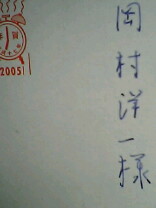 岡村洋一様
2005